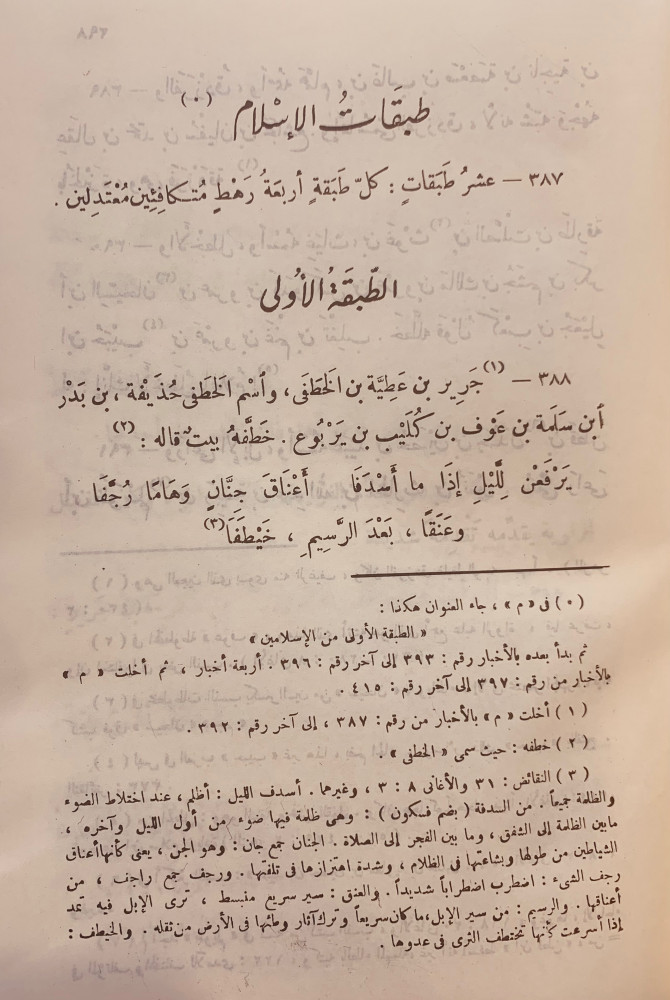 طبَقَاتُ الإسْلام (٠)
٣٨٧ — عشرُ طَبَقاتٍ : كلّ طَبَقةٍ أربعَةُ رَهْطٍ مُتَكافِئِين مُعْتَدِلين .
الطّبقَةُ الأُولى
٣٨٨ — (١) جَرِير بن عَطِيَّة بن الخَطَفَى ، وٱسْم الخَطَفى حُذَيْفة ، بن بَدْر
ٱبن سَلَمة بن عَوْف بن كُلَيْب بن يَرْبُوع . خَطَّفَهُ بيتٌ قاله : (٢)
يَرْفَعْنَ لِلَّيْلِ إذَا ما أَسْدَفَا أَعْنَاقَ جِنَّانٍ وَهَامًا رُجَّفَا
وعَنَقًا ، بَعْدَ الرَّسِيمِ ، خَيْطَفَا (٣)
( ٠ ) فى « م » ، جاء العنوان هكذا :
« الطبقة الأولى من الإسلامين »
ثم بدأ بعده بالأخبار رقم : ٣٩٣ إلى آخر رقم : ٣٩٦ . أربعة أخبار ، ثم أخلت « م »
بالأخبار من رقم : ٣٩٧ إلى آخر رقم : ٤١٥ .
( ١ ) أخلت « م » بالأخبار من رقم : ٣٨٧ ، إلى آخر رقم : ٣٩٢ .
( ٢ ) خطفه : حيث سمى « الخطفى » .
( ٣ ) النقائض : ٣١ والأغانى ٨ : ٣ ، وغيرهما . أسدف الليل : أظلم ، عند اختلاط الضوء
والظلمة جميعاً . من السدفة ( بضم فسكون ) : وهى ظلمة فيها ضوء من أول الليل وآخره ،
مابين الظلمة إلى الشفق ، وما بين الفجر إلى الصلاة . الجنان جمع جان : وهو الجن ، يعنى كأنها أعناق
الشياطين من طولها وبشاعتها فى الظلام ، وشدة اهتزازها فى تلفتها . ورجف جمع راجف ، من
رجف الشىء : اضطرب اضطراباً شديداً . والعنق : سير سريع منبسط ، ترى الإبل فيه تمد
أعناقها . والرسيم : من سير الإبل ، ما كان سريعاً وترك آثار وطئها فى الأرض من ثقله . والخيطف :
إذا أسرعت كأنها تختطف الثرى فى عدوها .